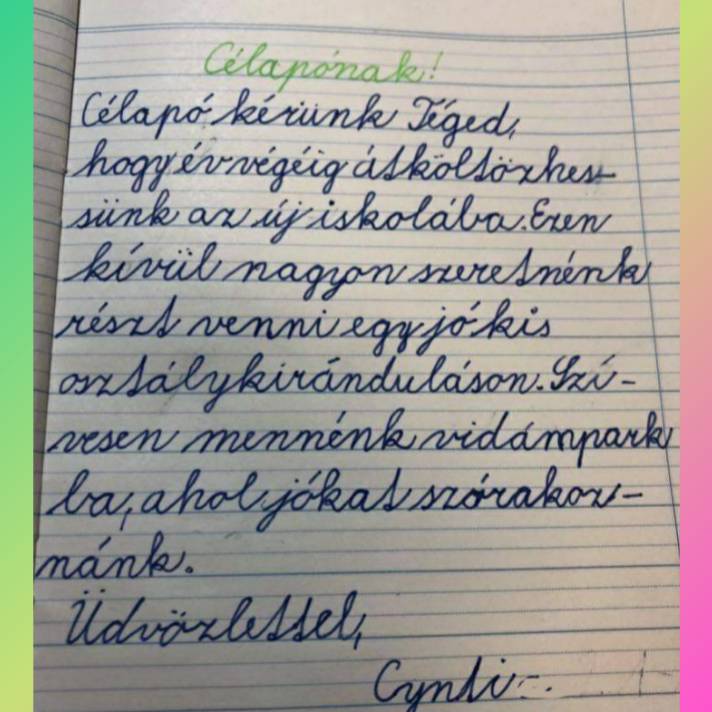 Célapónak!
Célapó kérünk Téged,
hogy évvégéig átköltözhes-
sünk az új iskolába. Ezen
kívül nagyon szeretnénk
részt venni egy jó kis
osztálykiránduláson. Szí-
vesen mennénk vidámpark
ba, ahol jókat szórakoz-
nánk.
Üdvözlettel,
Cynti